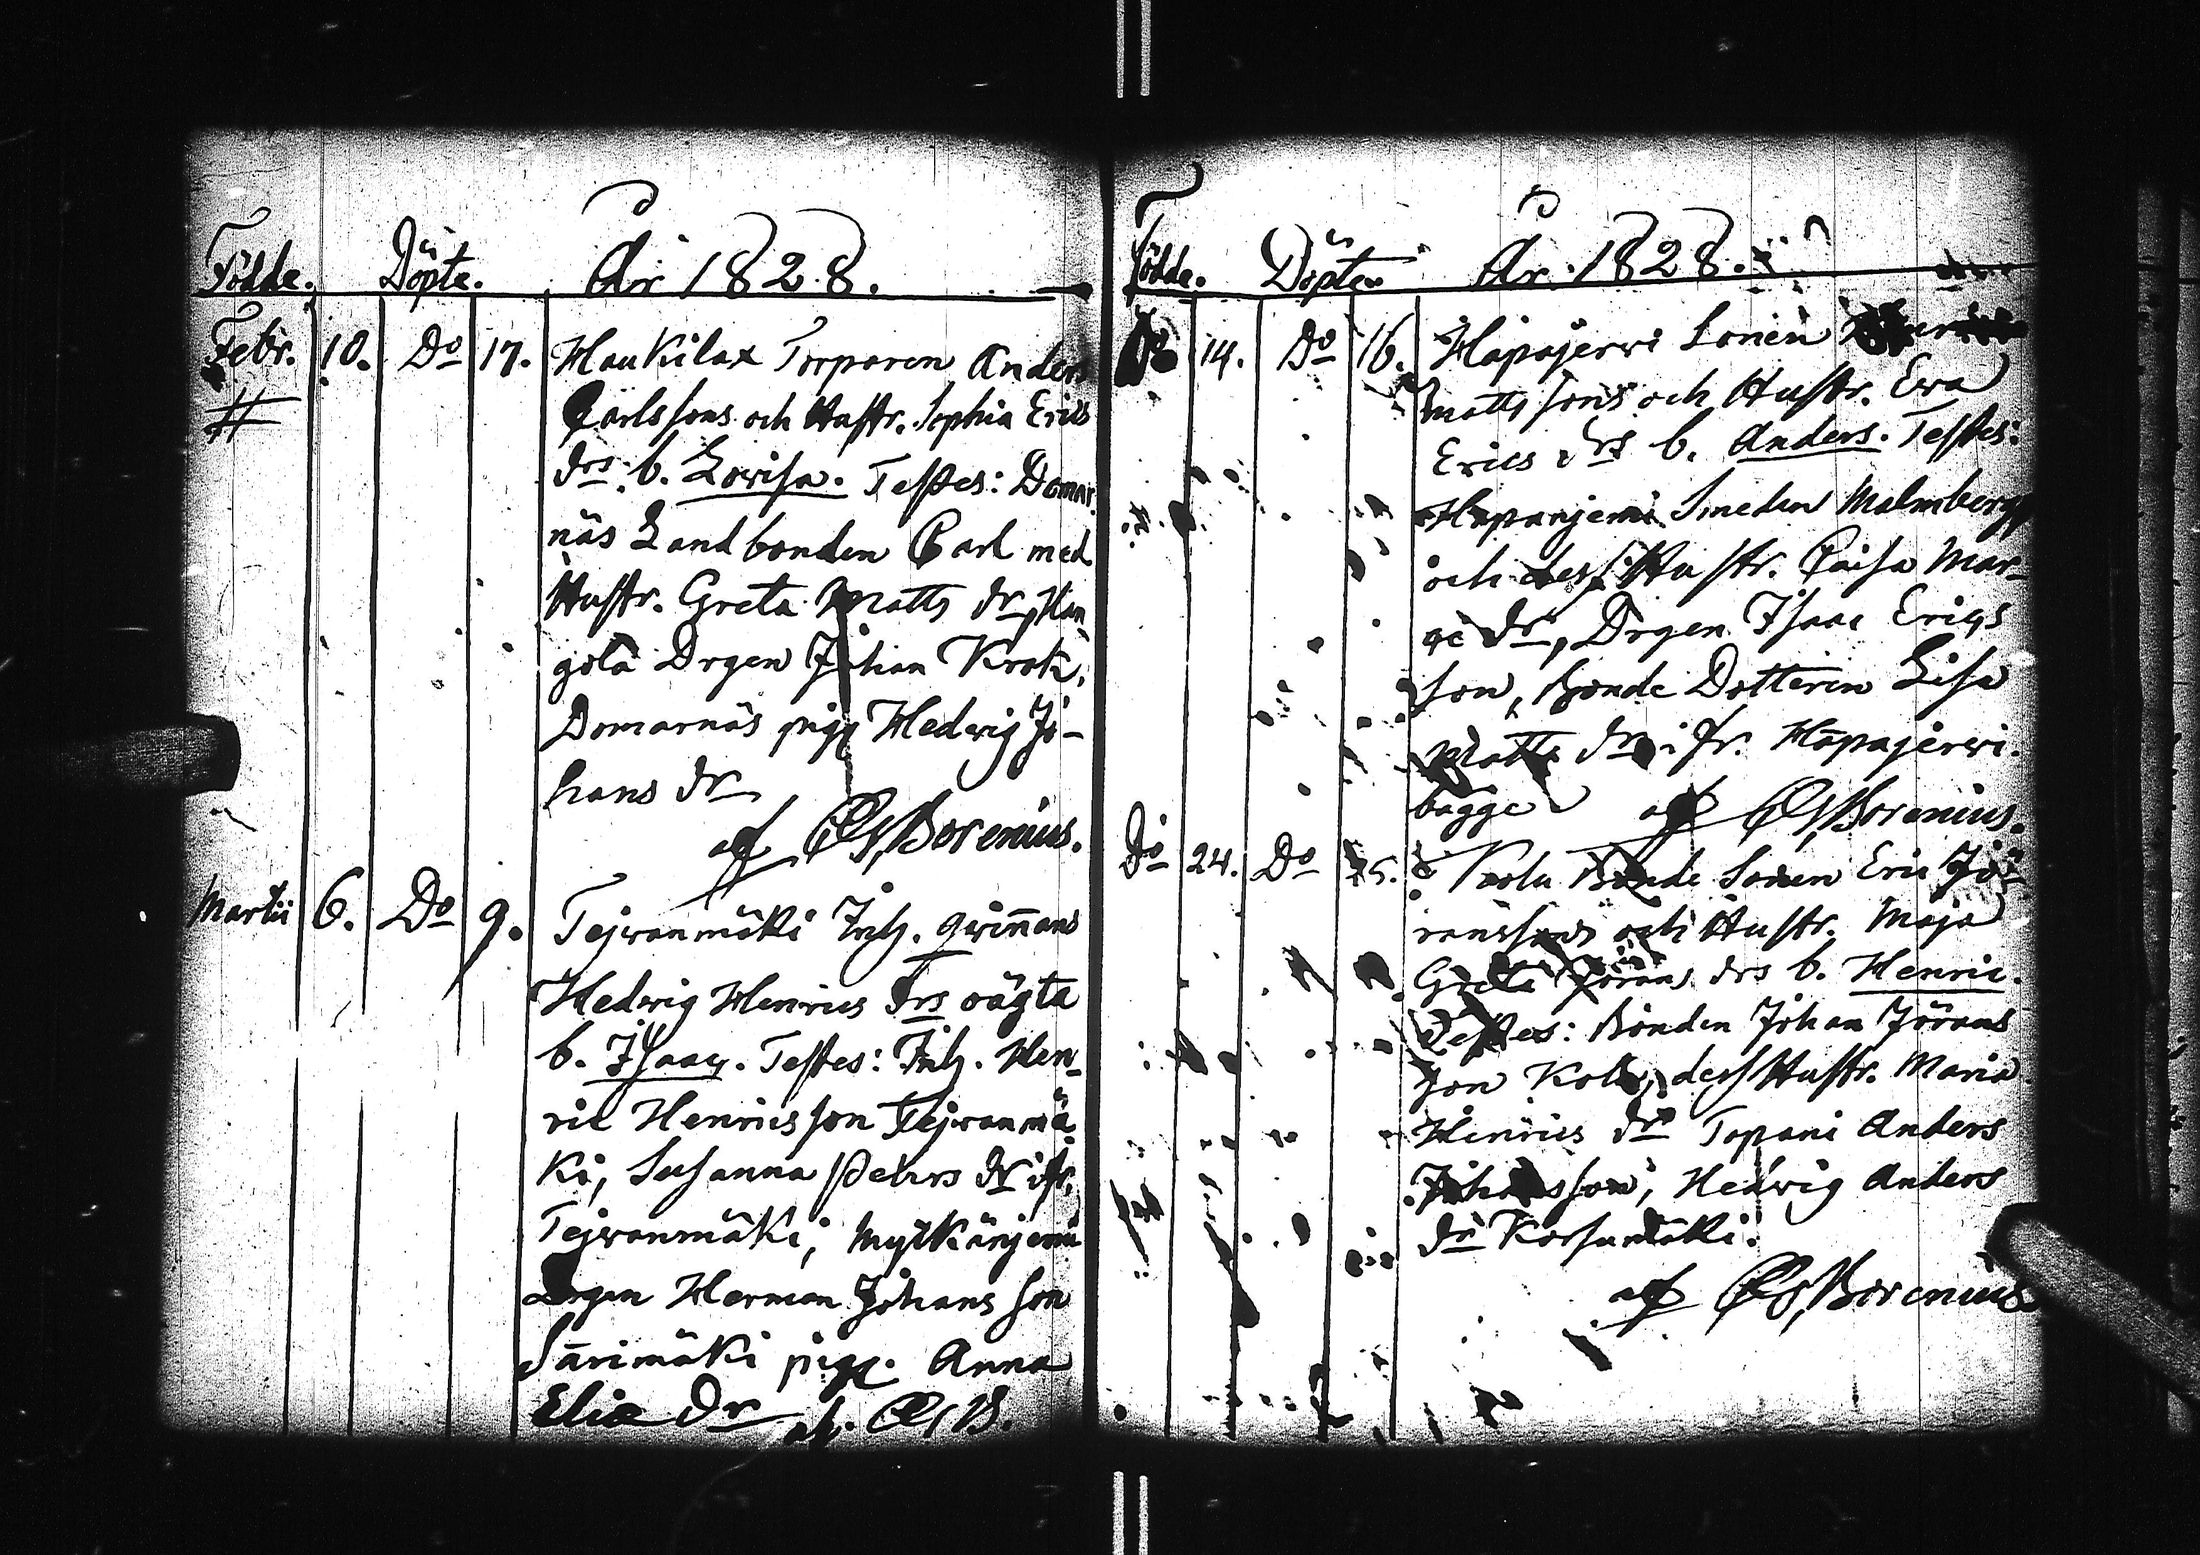 Födde. Döpte. År 1828.
Febr. 10. Do 17. Haukilax Torparen Anders
Carlssons och Hustr. Sophia Erics
drs. b. Lovisa. Testes: Domar
näs Landbonden Carl med
Hustr. Greta Matts dr, Han
gola Drgen Johan Krok,
Domarnäs pigg Hedvig Jo-
hans dr
af Borenius.
Martii 6. Do 9. Tejvanmäki Inh. qwinnans
Hedvig Henrics drs oägta
b. Isaac. Testes: Inh. Hen-
ric Henricsson Tejvanmä
ki, Susanna Peters dr ifr.
Tejvanmäki, Myllkänjemi
Drgen Herman Johans son
Särimäki pigg. Anna
Elia dr af. B.
Födde. Döpte. År 1828.
Do 14. Do 16. Hapajervi Sonen
Mattssons och Hustr. Eva
Erics drs b. Anders. Testes:
Hapanjemi Smeden Malmberg
och dess Hustr. Caisa Mar-
dr, Drgen Isaac Erics
son, Bonde Dotteren Lisa
Matts dr ifr. Hapajervi.
bägge af Borenius.
Do 24. Do Bonde Sonen Eric Jö-
ranssons och Hustr. Maja
Greta Jörans drs b. Henric.
Testes: Bonden Johan Jörans
son Kolu, dess Hustr. Maria
Henrics dr Tapani Anders
Johansson, Hedvig Anders
dr Korsumäki.
af Borenius